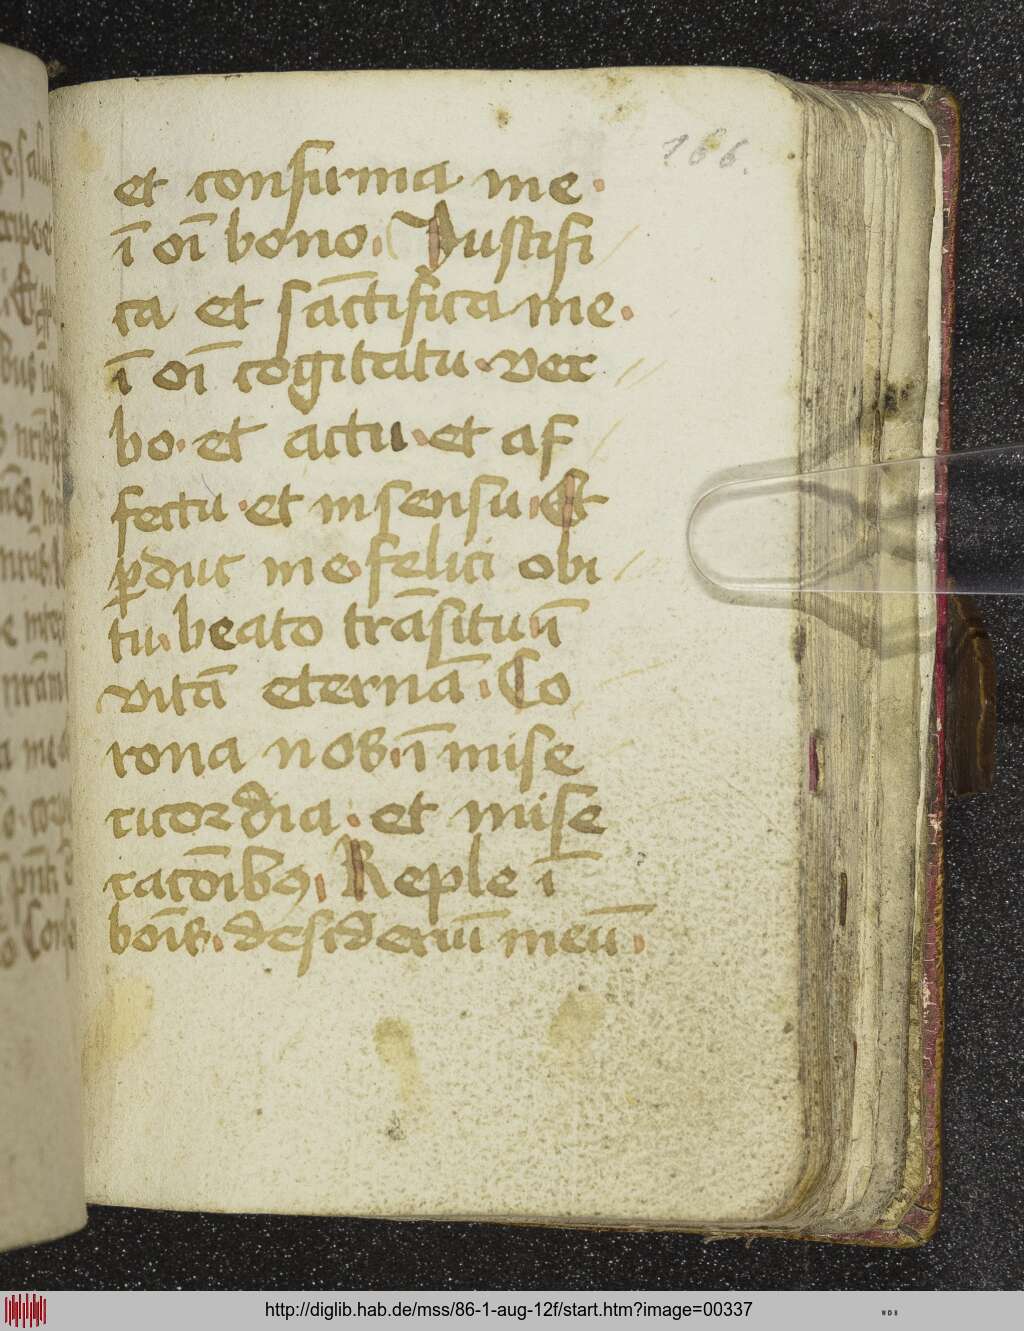 166.
et confirma me.
ī oī bono. Justifi
ca et sāctifica me.
ī oī cogitatu. ver
bo. et actu. et af
fectu. et in sensu. Et
ꝑduc me felici obi
tu. beato trāsitu. ī
vitā eternā. Co
rona nos. ī mise
ricordia. et mise
racōibꝯ. Reple ī
bois. desideriū meū.
http://diglib.hab.de/mss/86-1-aug-12f/start.htm?image=00337